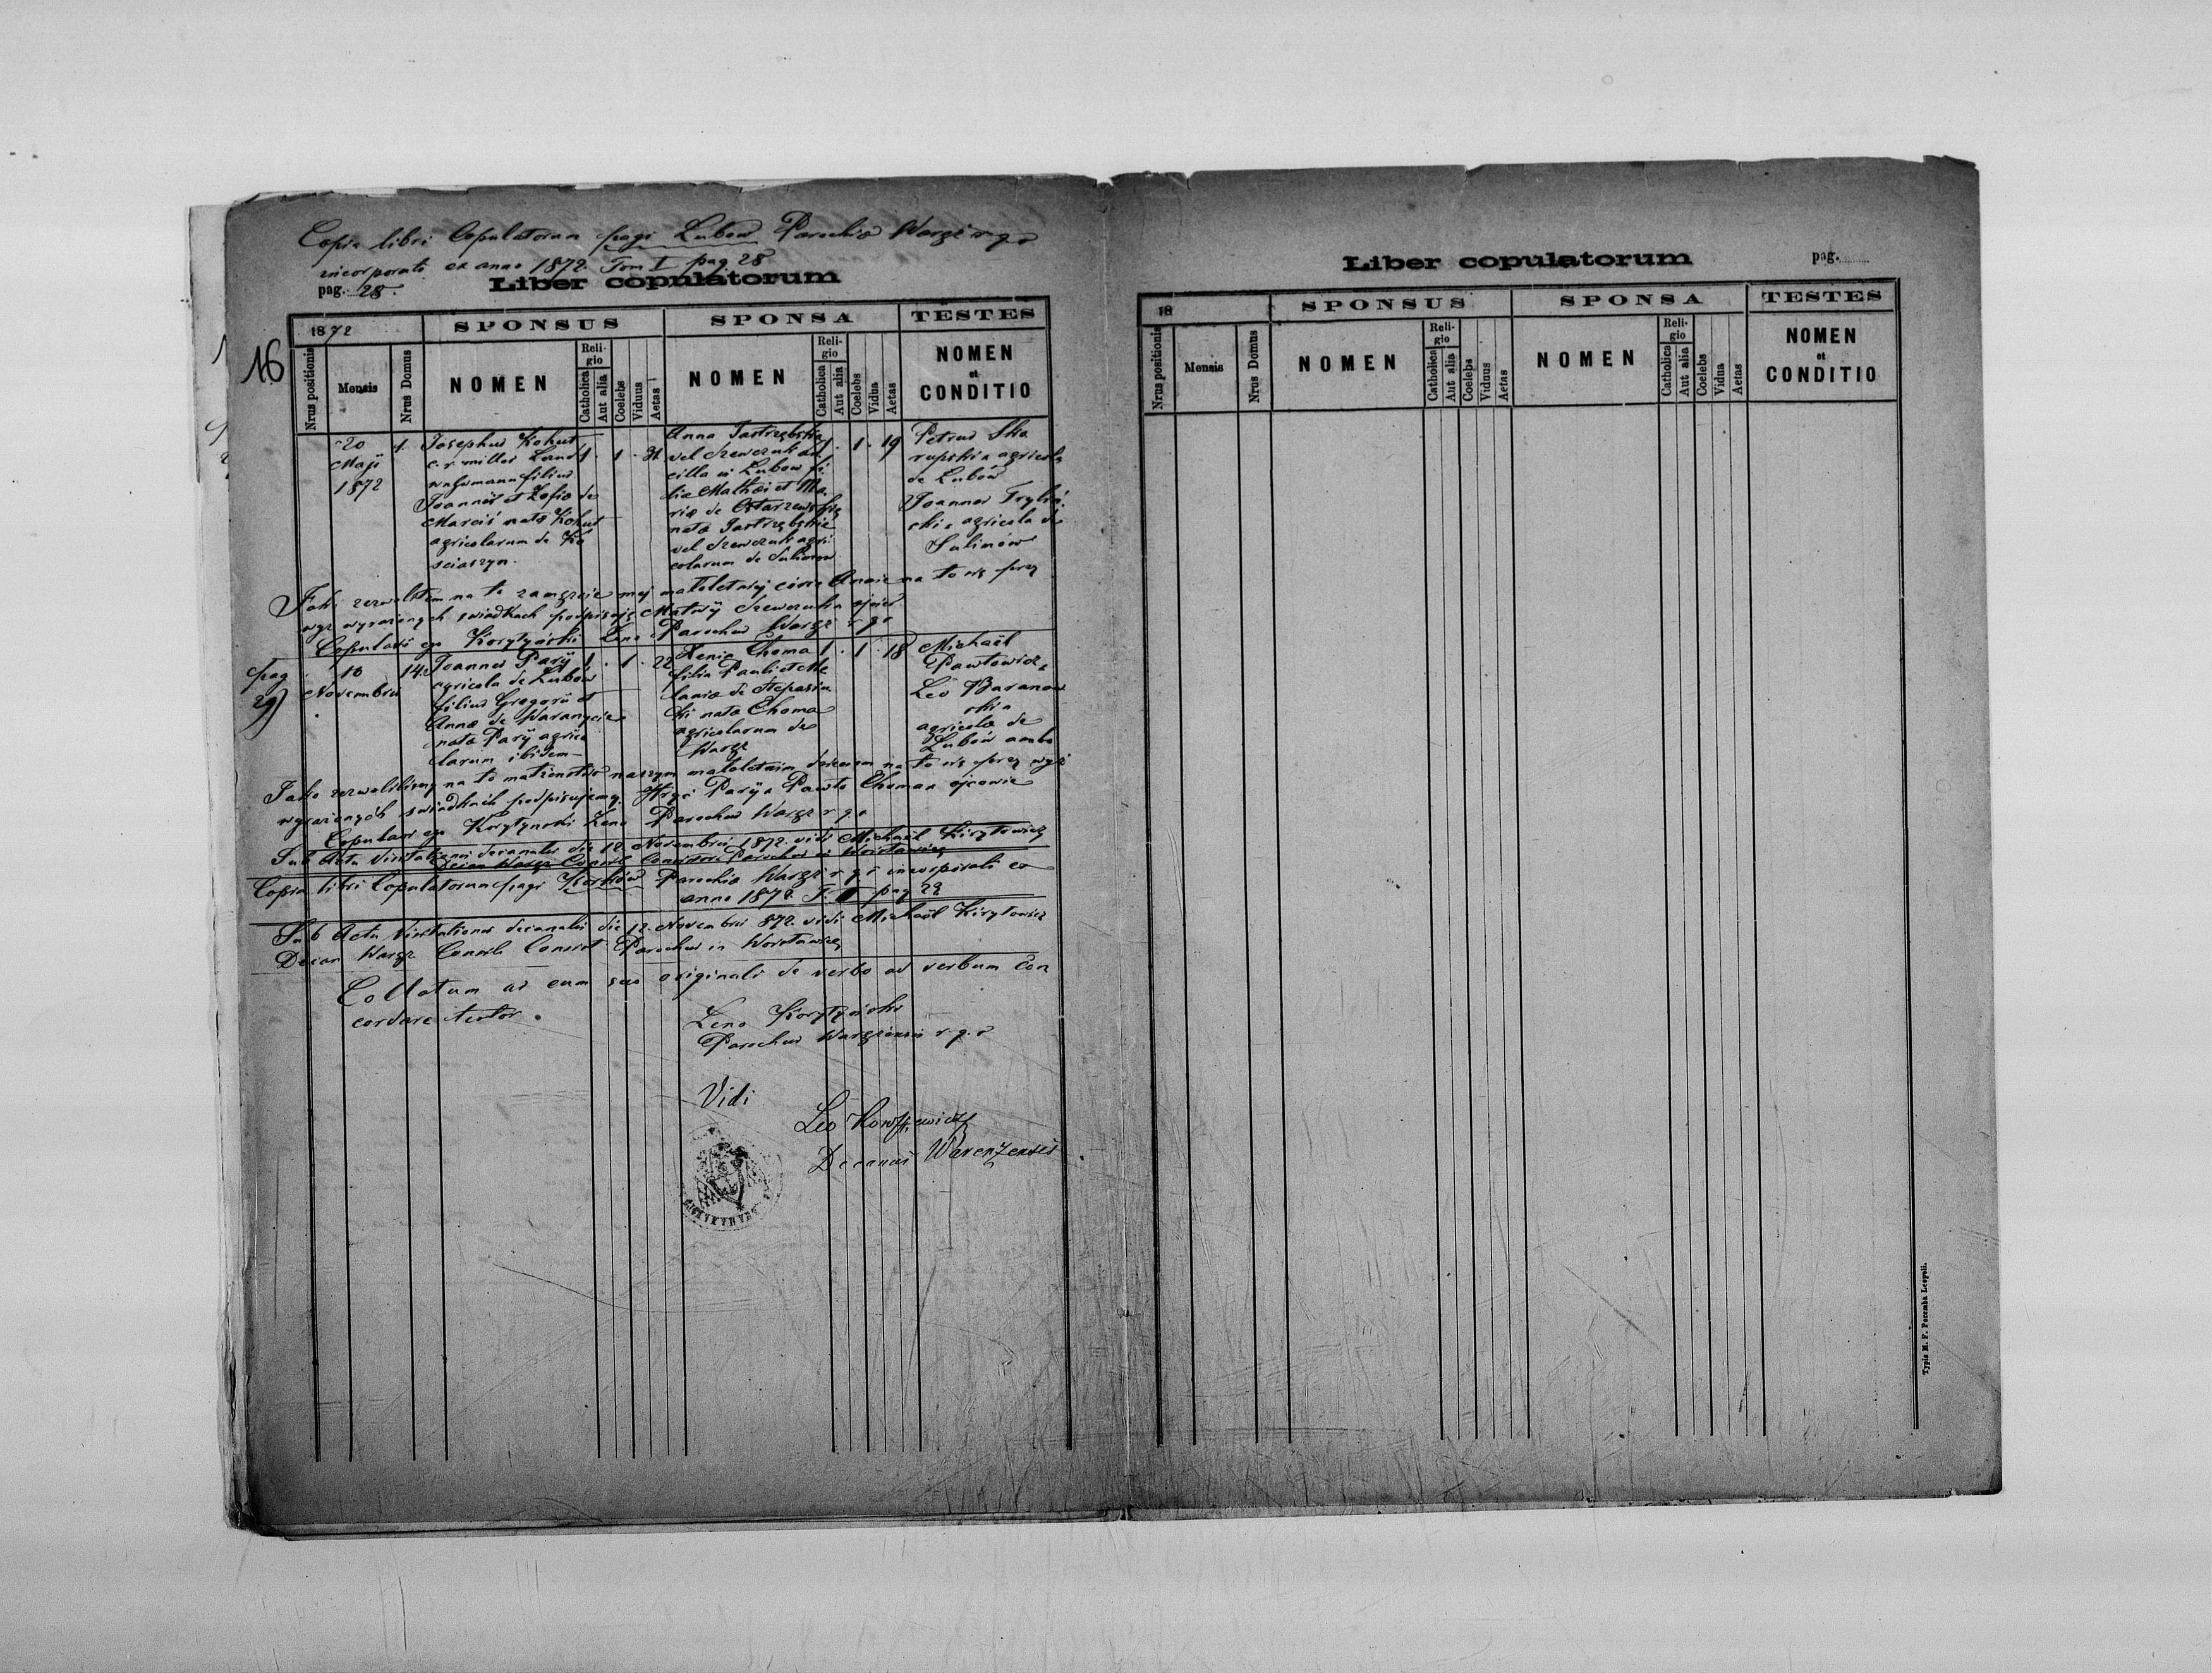 Copia libri Copulatorum pagi Lubow Parochiæ Waręż r. g. c
incorporati ex anno 1872. Tom I pag. 28
Liber copulatorum
pag. 28.
16
1872
SPONSUS
SPONSA
TESTES
Nrus positionis
Mensis
Nrus Domus
NOMEN
Religio
Catholica
Aut alia
Coelebs
Viduus
Aetas
NOMEN
Religio
Catholica
Aut alia
Coelebs
Vidua
Aetas
NOMEN
et
CONDITIO
20
Maji
1872
1.
Josephus Kohut
c. r. milles Land
wehrmann filius
Joannis et Zofiæ de
Marciś nata Kohut
agricolarum de Ko
sciaszyn.
1 . 1 . 31
Anna Jastrzębska
vel Szewczuk an
cilla in Lubow fi
lia Mathæi et Ma
riæ de Ostarzewskie
nata Jastrzębskie
vel Szewczuk agri
colarum de Sulimow
1 . 1 . 19
Petrus Ska
rupski agricola
de Lubów
Joannes
ski, agricola de
Sulimów
Jako zezwoliłem na to zamęzcie mej małoletniej córce Annie na to się przy
wyz wyrażonych swiadkach podpisuję Matwij Szewczuk ojciec
Copulavi ego Korytyński Zeno Parochus Waręż r. g. c
pag
29)
16
Novembris
14.
Joannes Paryj
agricola de Lubów
filius Gregorii et
Annæ de Waranycie
nata Paryj agrico
larum ibidem
1 . 1 . 22
Xenia Choma
filia Pauli et Me
laniæ de Stepasiu
ki nata Choma
agricolarum de
Waręż
1 . 1 . 18
Michaël
Pawłowicz,
Leo Baranow
ski
agricolæ de
Lubów ambo
Jako zezwoliliśmy na to małżenstwo naszym małoletnim dzieciom na to się przy wyż
wyrażonych swiadkach podpisujemy. Hryć Paryj Pawło Choma ojcowie
Copulavi ego Korytynski Zeno Parochus Waręż r. g. c
Sub Actu Visitationis decanalis die 12 Novembris 1872. vidi Michaël Kiryłowicz
Decan Waręż Consil Consistor Parochus in
Copia libri Copulatorum pagi Parochiæ Waręż r. g. c incorporati ex
anno 1872. T. pag 29
Sub Actu Visitationis decanalis die 12. Novembris 872. vidi Michaël Kiryłowicz
Decan Waręż Consil Consist Parochus in
Collatum ac cum suo originali de verbo ad verbum con
cordare testor.
Zeno Korytyński
Parochus Waręzensis r. g. c
Vidi
Leo
Decanus Warenzensis
Liber copulatorum
pag.
18
SPONSUS
SPONSA
TESTES
Nrus positionis
Mensis
Nrus Domus
NOMEN
Religio
Catholica
Aut alia
Coelebs
Viduus
Aetas
NOMEN
Religio
Catholica
Aut alia
Coelebs
Vidua
Aetas
NOMEN
et
CONDITIO
Typis M. F. Poremba Leopoli.